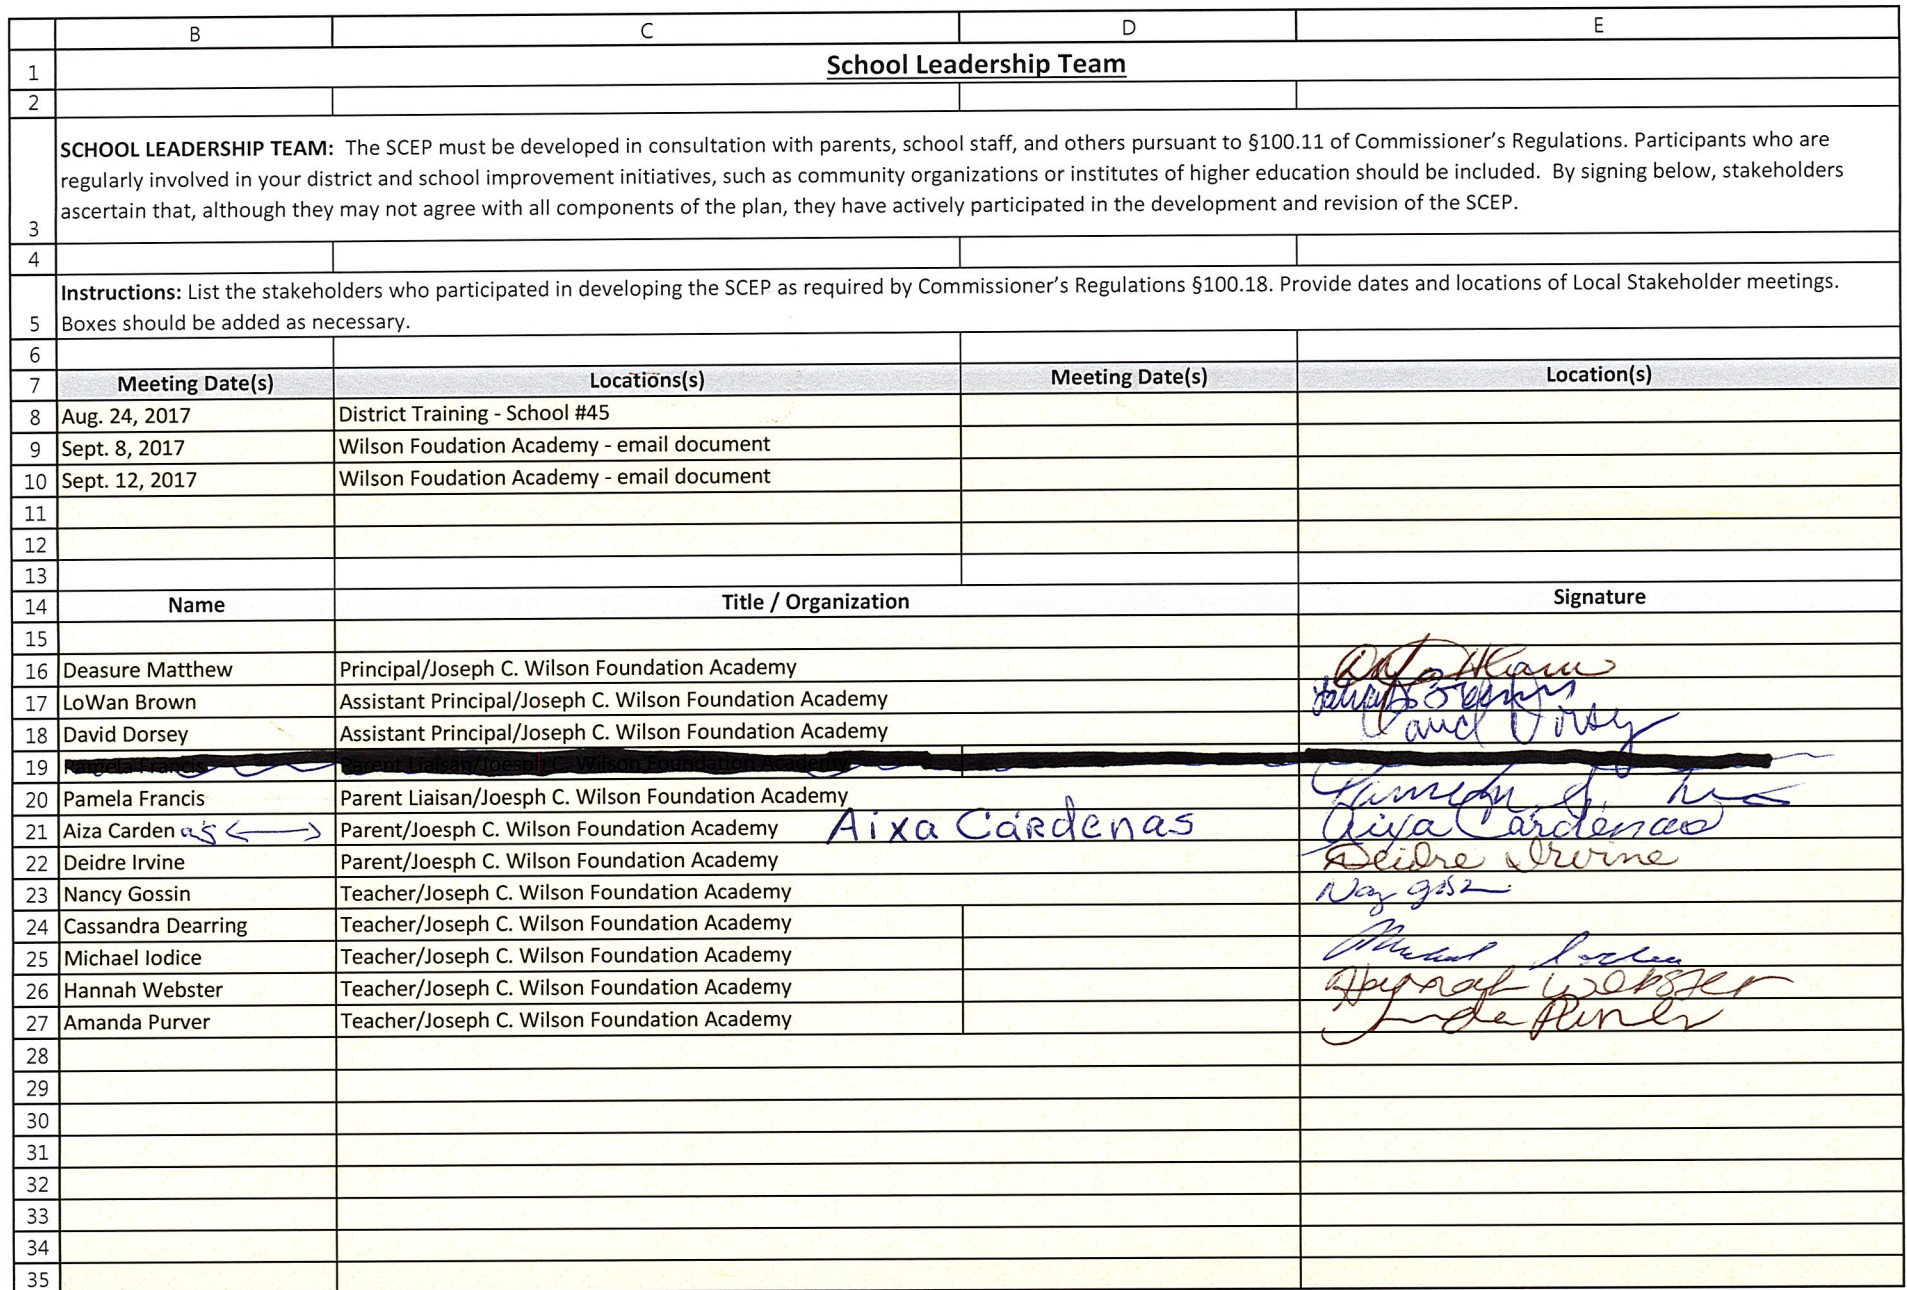 B C D E
1 School Leadership Team
2
3 SCHOOL LEADERSHIP TEAM: The SCEP must be developed in consultation with parents, school staff, and others pursuant to §100.11 of Commissioner's Regulations. Participants who are
regularly involved in your district and school improvement initiatives, such as community organizations or institutes of higher education should be included. By signing below, stakeholders
ascertain that, although they may not agree with all components of the plan, they have actively participated in the development and revision of the SCEP.
4
5 Instructions: List the stakeholders who participated in developing the SCEP as required by Commissioner's Regulations §100.18. Provide dates and locations of Local Stakeholder meetings.
Boxes should be added as necessary.
6
7 Meeting Date(s) Locations(s) Meeting Date(s) Location(s)
8 Aug. 24, 2017 District Training - School #45
9 Sept. 8, 2017 Wilson Foudation Academy - email document
10 Sept. 12, 2017 Wilson Foudation Academy - email document
11
12
13
14 Name Title / Organization Signature
15
16 Deasure Matthew Principal/Joseph C. Wilson Foundation Academy
17 LoWan Brown Assistant Principal/Joseph C. Wilson Foundation Academy
18 David Dorsey Assistant Principal/Joseph C. Wilson Foundation Academy David Dorsey
19 Pamela Francis Parent Liaisan/Joesph C. Wilson Foundation Academy
20 Pamela Francis Parent Liaisan/Joesph C. Wilson Foundation Academy
21 Aiza Carden as Parent/Joesph C. Wilson Foundation Academy Aixa Cárdenas Aixa Cárdenas
22 Deidre Irvine Parent/Joesph C. Wilson Foundation Academy Deidre Irvine
23 Nancy Gossin Teacher/Joseph C. Wilson Foundation Academy
24 Cassandra Dearring Teacher/Joseph C. Wilson Foundation Academy
25 Michael Iodice Teacher/Joseph C. Wilson Foundation Academy
26 Hannah Webster Teacher/Joseph C. Wilson Foundation Academy Hannah Webster
27 Amanda Purver Teacher/Joseph C. Wilson Foundation Academy
28
29
30
31
32
33
34
35